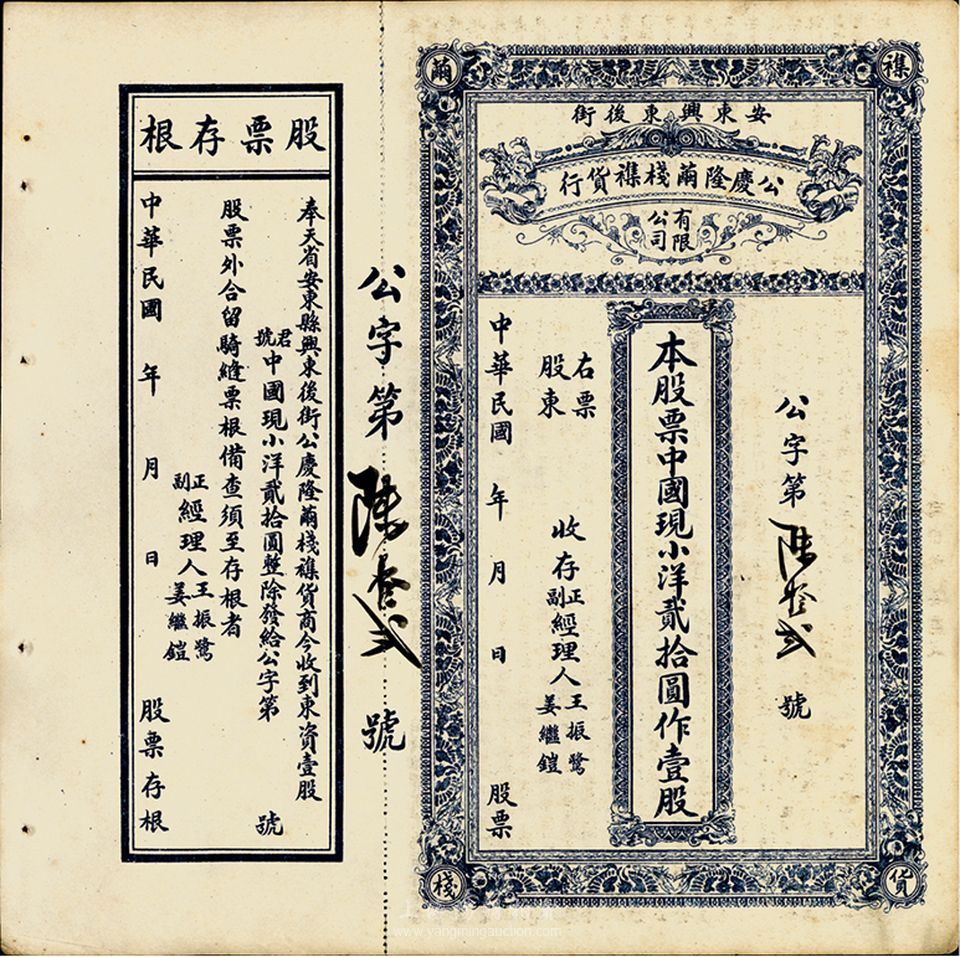 繭
襍
棧
貨
安東興東後街
公慶隆繭棧襍貨行
有限
公司
公字第陸叁弍號
本股票中國現小洋貳拾圓作壹股
右票
股東
收存正副經理人王振鷺姜繼鎧
中華民國 年 月 日 股票
公字第陸叁弍號
股票存根
奉天省安東縣興東後街公慶隆繭棧襍貨商今收到東資壹股
君號中國現小洋貳拾圓整除發給公字第 號
股票外合留騎縫票根備查須至存根者
正副經理人王振鷺姜繼鎧
中華民國 年 月 日 股票存根
www.yangmingauction.com